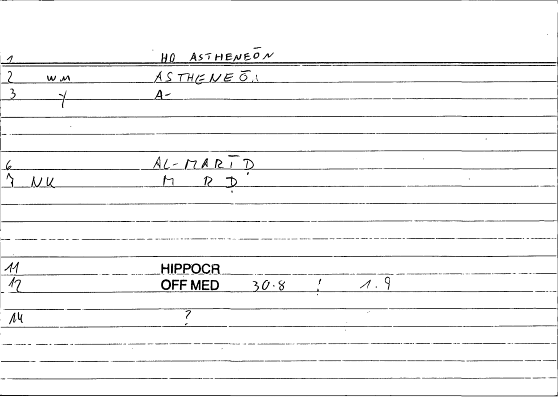 1 HO ASTHENEŌN
2 WM ASTHENEŌ:
3 Y A-
6 AL-MARĪḌ
7 NK M R Ḍ
11 HIPPOCR
12 OFF MED 30.8 ! 1.9
14 ?